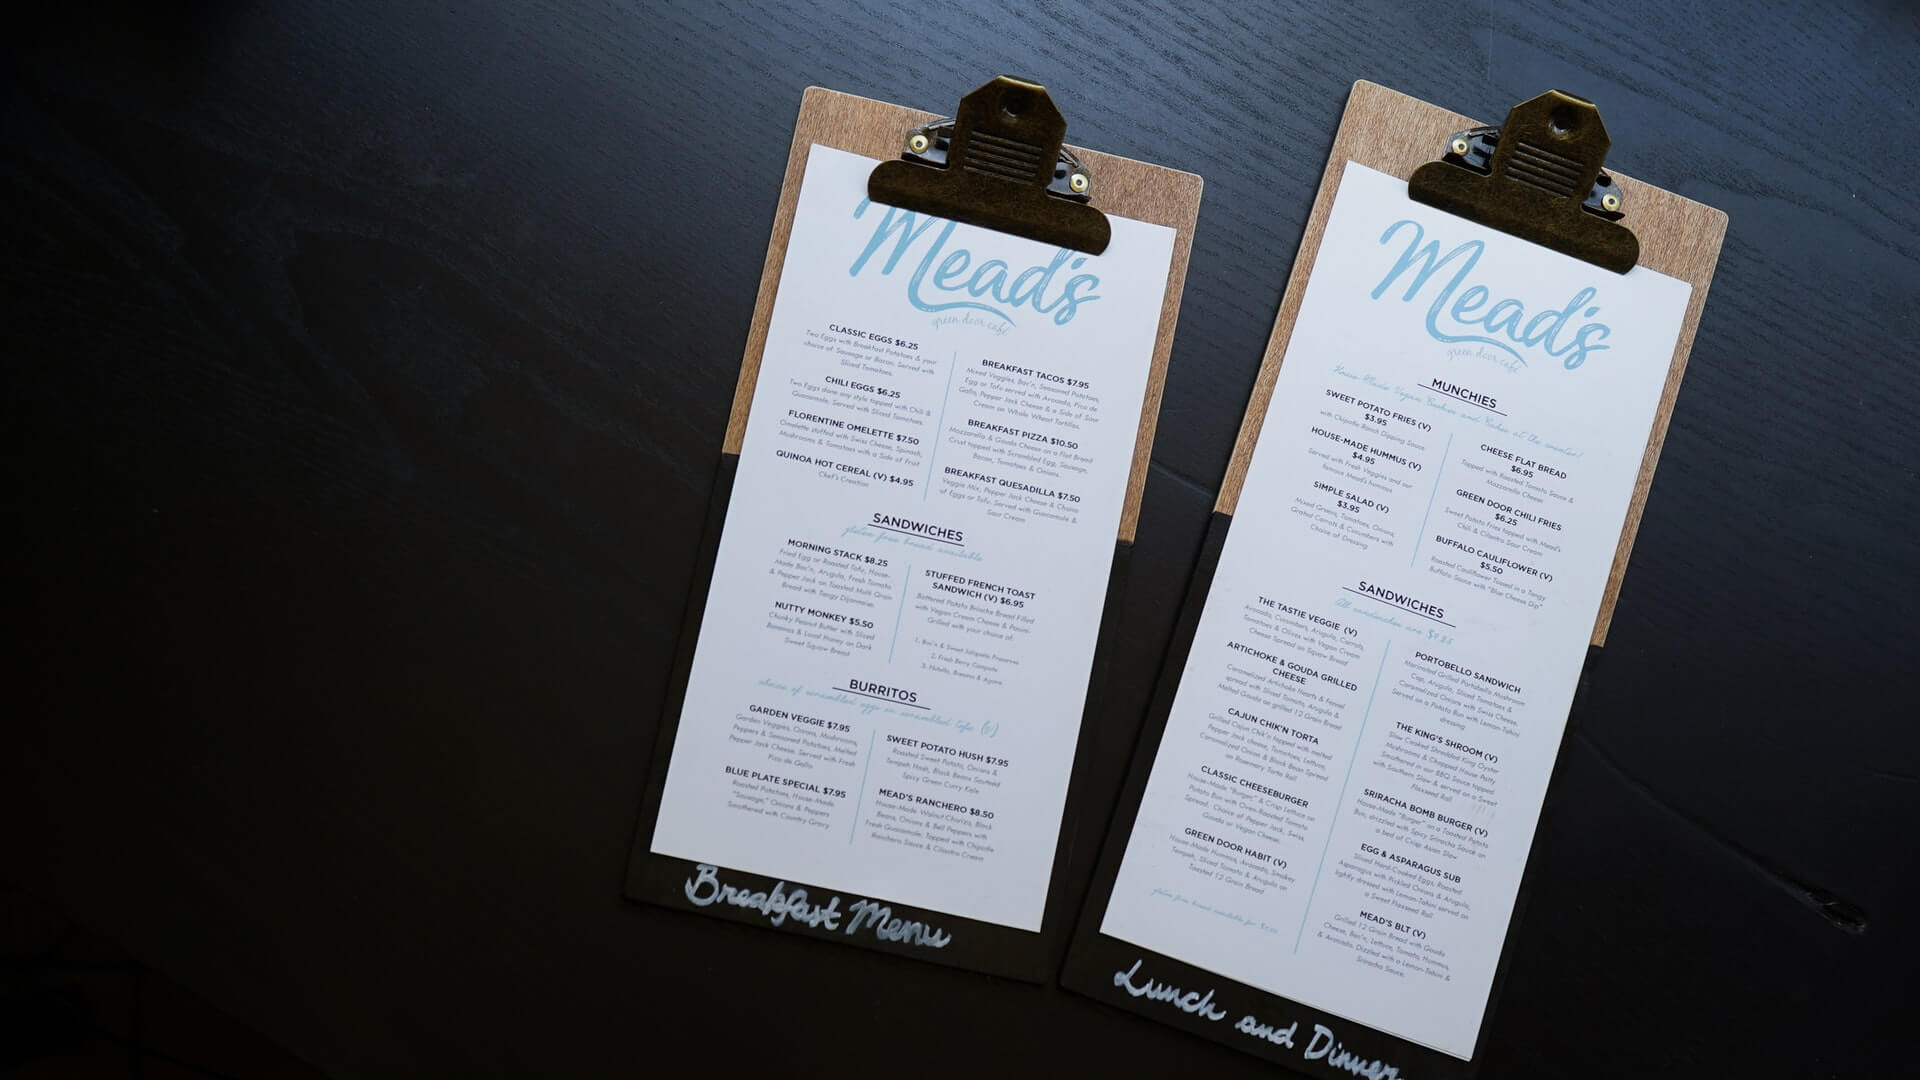 Mead's
green door café
CLASSIC EGGS $6.25
Two Eggs with Breakfast Potatoes & your
choice of Sausage or Bacon. Served with
Sliced Tomatoes.
CHILI EGGS $6.25
Two Eggs done any style topped with Chili &
Guacamole, Served with Sliced Tomatoes.
FLORENTINE OMELETTE $7.50
Omelette stuffed with Swiss Cheese, Spinach,
Mushrooms & Tomatoes with a Side of Fruit
QUINOA HOT CEREAL (V) $4.95
Chef's Creation
BREAKFAST TACOS $7.95
Mixed Veggies, Bac'n, Seasoned Potatoes,
Egg or Tofu served with Avocado, Pico de
Gallo, Pepper Jack Cheese & a Side of Sour
Cream on Whole Wheat Tortillas.
BREAKFAST PIZZA $10.50
Mozzarella & Gouda Cheese on a Flat Bread
Crust topped with Scrambled Egg, Sausage,
Bacon, Tomatoes & Onions.
BREAKFAST QUESADILLA $7.50
Veggie Mix, Pepper Jack Cheese & Choice
of Eggs or Tofu. Served with Guacamole &
Sour Cream
SANDWICHES
gluten free bread available
MORNING STACK $8.25
Fried Egg or Roasted Tofu, House-
Made Bac'n, Arugula, Fresh Tomato
& Pepper Jack on Toasted Multi Grain
Bread with Tangy Dijonnaise.
NUTTY MONKEY $5.50
Chunky Peanut Butter with Sliced
Bananas & Local Honey on Dark
Sweet Squaw Bread
STUFFED FRENCH TOAST
SANDWICH (V) $6.95
Battered Potato Brioche Bread Filled
with Vegan Cream Cheese & Panini-
Grilled with your choice of:
1. Bac'n & Sweet Jalapeño Preserves
2. Fresh Berry Compote
3. Nutella, Banana & Agave
BURRITOS
choice of scrambled eggs or scrambled tofu (v)
GARDEN VEGGIE $7.95
Garden Veggies, Onions, Mushrooms,
Peppers & Seasoned Potatoes, Melted
Pepper Jack Cheese. Served with Fresh
Pico de Gallo
BLUE PLATE SPECIAL $7.95
Roasted Potatoes, House-Made
"Sausage," Onions & Peppers
Smothered with Country Gravy
SWEET POTATO HUSH $7.95
Roasted Sweet Potato, Onions &
Tempeh Hash, Black Beans Sauteed
Spicy Green Curry Kale
MEAD'S RANCHERO $8.50
House-Made Walnut Chorizo, Black
Beans, Onions & Bell Peppers with
Fresh Guacamole, Topped with Chipotle
Ranchera Sauce & Cilantro Cream
Breakfast Menu
Mead's
green door café
MUNCHIES
House Made Vegan Cookies and Cakes at the counter!
SWEET POTATO FRIES (V)
$3.95
with Chipotle Ranch Dipping Sauce
HOUSE-MADE HUMMUS (V)
$4.95
Served with Fresh Veggies and our
famous Mead's hummus
SIMPLE SALAD (V)
$3.95
Mixed Greens, Tomatoes, Onions,
Grated Carrots & Cucumbers with
Choice of Dressing
CHEESE FLAT BREAD
$6.95
Topped with Roasted Tomato Sauce &
Mozzarella Cheese
GREEN DOOR CHILI FRIES
$6.25
Sweet Potato Fries topped with Mead's
Chili & Cilantro Sour Cream
BUFFALO CAULIFLOWER (V)
$5.50
Roasted Cauliflower Tossed in a Tangy
Buffalo Sauce with "Blue Cheese Dip"
SANDWICHES
All sandwiches are $9.25
THE TASTIE VEGGIE (V)
Avocado, Cucumbers, Arugula, Carrots,
Tomatoes & Olives with Vegan Cream
Cheese Spread on Squaw Bread
ARTICHOKE & GOUDA GRILLED
CHEESE
Caramelized Artichoke Hearts & Fennel
spread with Sliced Tomato, Arugula &
Melted Gouda on grilled 12 Grain Bread
CAJUN CHIK'N TORTA
Grilled Cajun Chik'n topped with melted
Pepper Jack cheese, Tomatoes, Lettuce,
Caramelized Onion & Black Bean Spread
on Rosemary Torta Roll
CLASSIC CHEESEBURGER
House-Made "Burger" & Crisp Lettuce on
Potato Bun with Oven-Roasted Tomato
Spread. Choice of Pepper Jack, Swiss,
Gouda or Vegan Cheese.
GREEN DOOR HABIT (V)
House-Made Hummus, Avocado, Smokey
Tempeh, Sliced Tomato & Arugula on
Toasted 12 Grain Bread
gluten free bread available for
PORTOBELLO SANDWICH
Marinated Grilled Portobello Mushroom
Cap, Arugula, Sliced Tomatoes &
Caramelized Onions with Swiss Cheese,
Served on a Potato Bun with Lemon-Tahini
dressing
THE KING'S SHROOM (V)
Slow Cooked Shredded King Oyster
Mushrooms & Chopped House Patty
Smothered in our BBQ Sauce topped
with Southern Slaw & served on a Sweet
Flaxseed Roll
SRIRACHA BOMB BURGER (V)
House-Made "Burger" on a Toasted Potato
Bun, drizzled with Spicy Sriracha Sauce on
a bed of Crisp Asian Slaw
EGG & ASPARAGUS SUB
Sliced Hard-Cooked Eggs, Roasted
Asparagus with Pickled Onions & Arugula,
lightly dressed with Lemon-Tahini served on
a Sweet Flaxseed Roll
MEAD'S BLT (V)
Grilled 12 Grain Bread with Gouda
Cheese, Bac'n, Lettuce, Tomato, Hummus,
& Avocado, Dizzled with a Lemon-Tahini &
Sriracha Sauce.
Lunch and Dinner